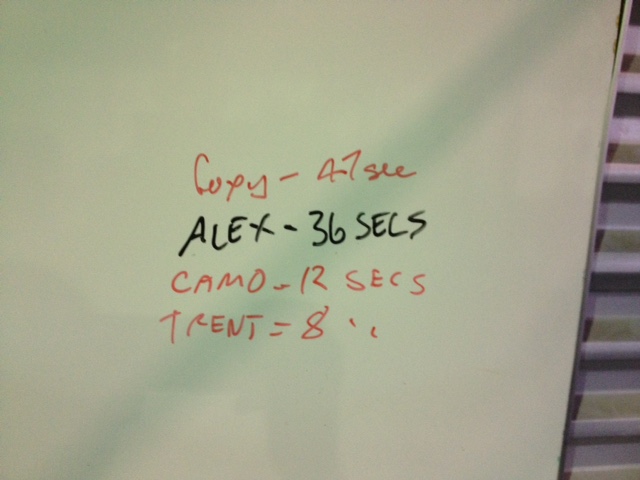 Copy - 47 sec
ALEX - 36 SECS
CAMO - 12 SECS
TRENT = 8 ''